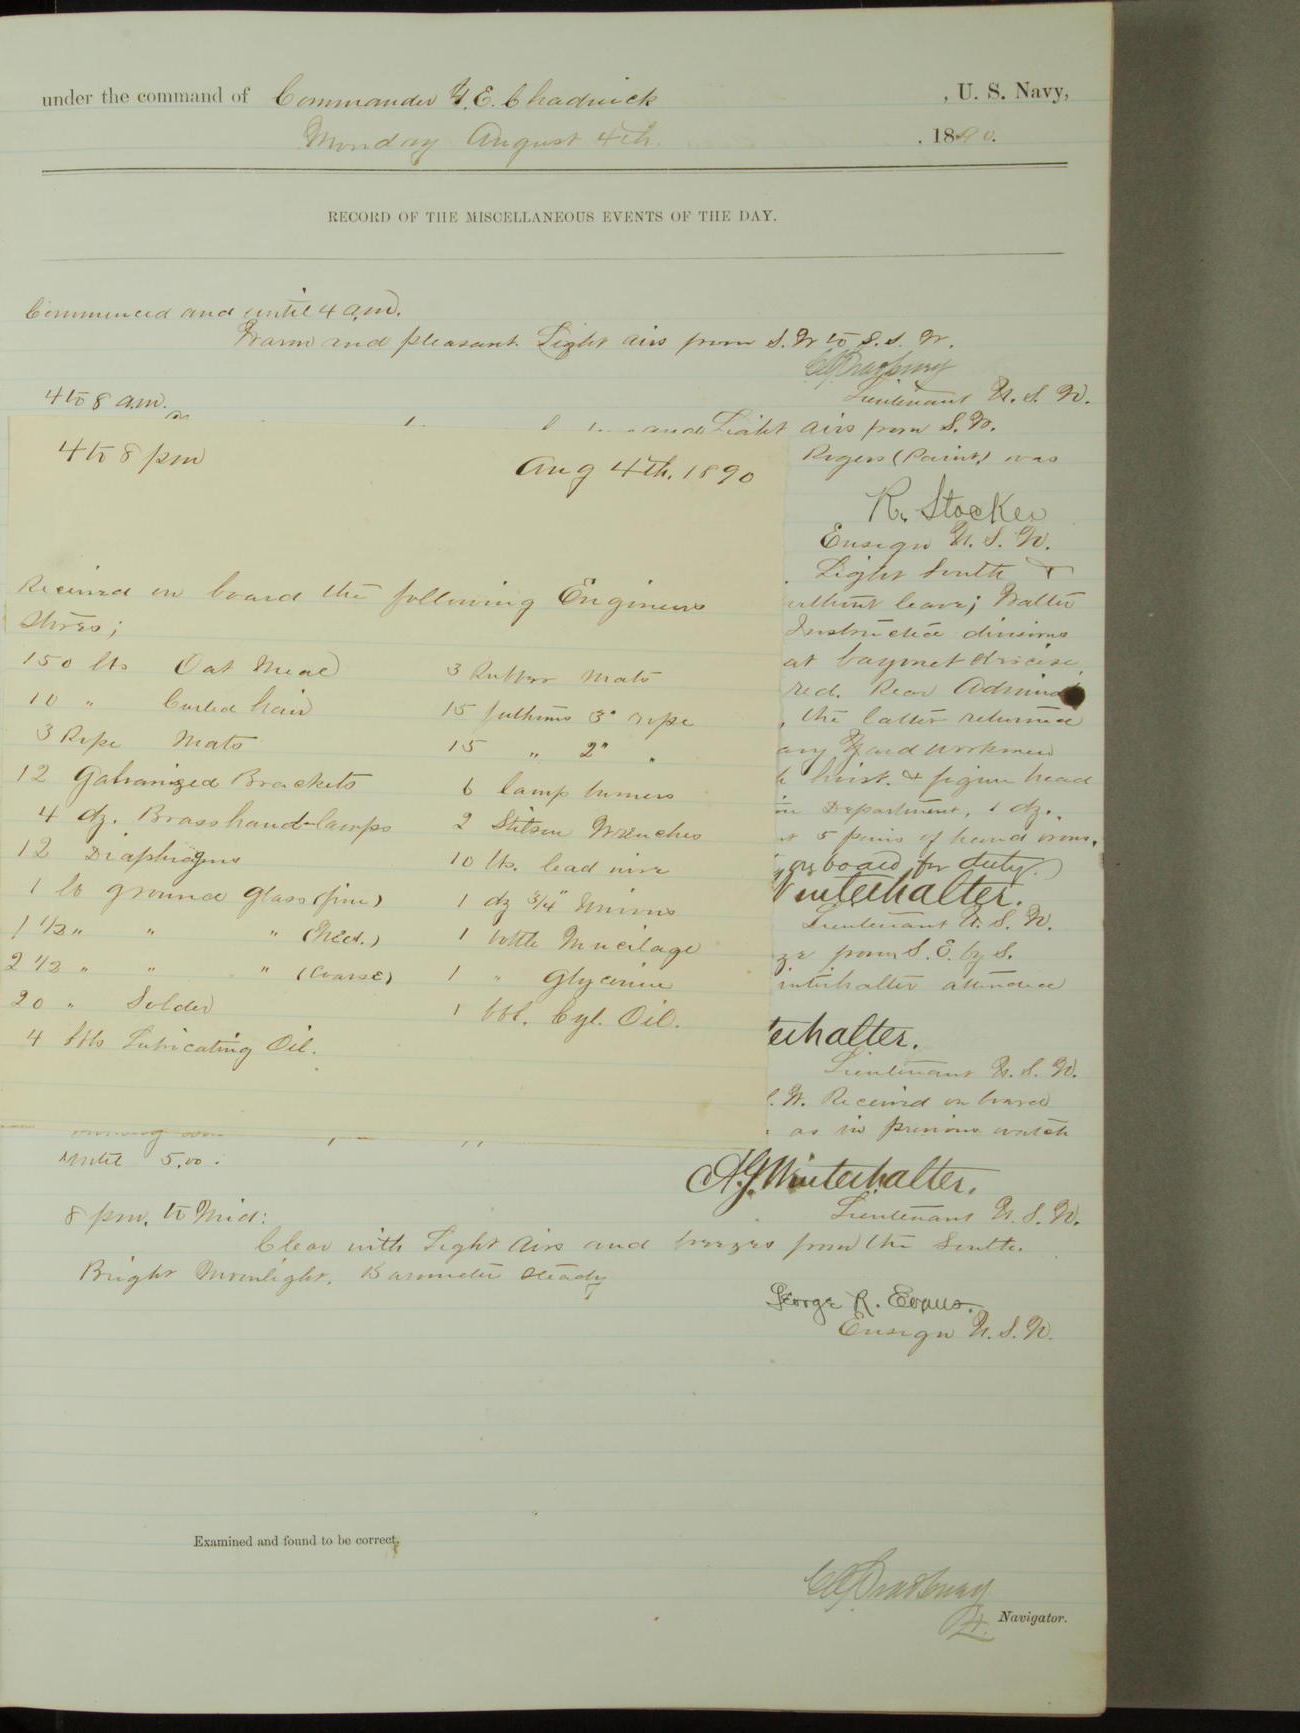 under the command of Commander F. E. Chadwick , U. S. Navy,
Monday August 4th. , 1890.
RECORD OF THE MISCELLANEOUS EVENTS OF THE DAY.
Commenced and until 4 a.m.
Warm and pleasant. Light airs from S.W to S.S.W.
Lieutenant U.S.N.
4 to 8 a.m.
and Light airs from S.W.
Rogers (Paint.) was
R. Stocker
Ensign U.S.N.
Light South &
without leave; Walter
Instructed divisions
at bayonet exercise
red. Rear Admiral
, the latter returned
Yard workmen
hoist. & figure head
Department, 1 dz.
5 pairs of hand irons.
on board for duty.
Winterhalter.
Lieutenant U.S.N.
from S.E. by S.
Winterhalter attended
Winterhalter.
Lieutenant U.S.N.
W. Received on board
as in previous watch
4 to 8 pm
Aug 4th. 1890
Received on board the following Engineers
Stores;
150 lbs Oat Meal 3 Rubber Mats
10 " Curled hair 15 fathoms 3" rope
3 Rope Mats 15 " 2" "
12 Galvanized Brackets 6 lamp burners
4 dz. Brass hand-lamps 2 Stilson Wrenches
12 Diaphragms 10 lbs. lead wire
1 lb ground glass (fine) 1 dz 3/4" Unions
1 1/2 " " " (Med.) 1 bottle Mucilage
2 1/2 " " " (Coarse) 1 " Glycerine
20 " Solder 1 bbl. Cyl. Oil.
4 bbls Lubricating Oil.
until 5.00.
A.G. Winterhalter.
Lieutenant U.S.N.
8 pm. to Mid:
Clear with Light airs and breezes from the South.
Bright Moonlight. Barometer steady
George R. Evans.
Ensign U.S.N.
Examined and found to be correct.
Lt. Navigator.